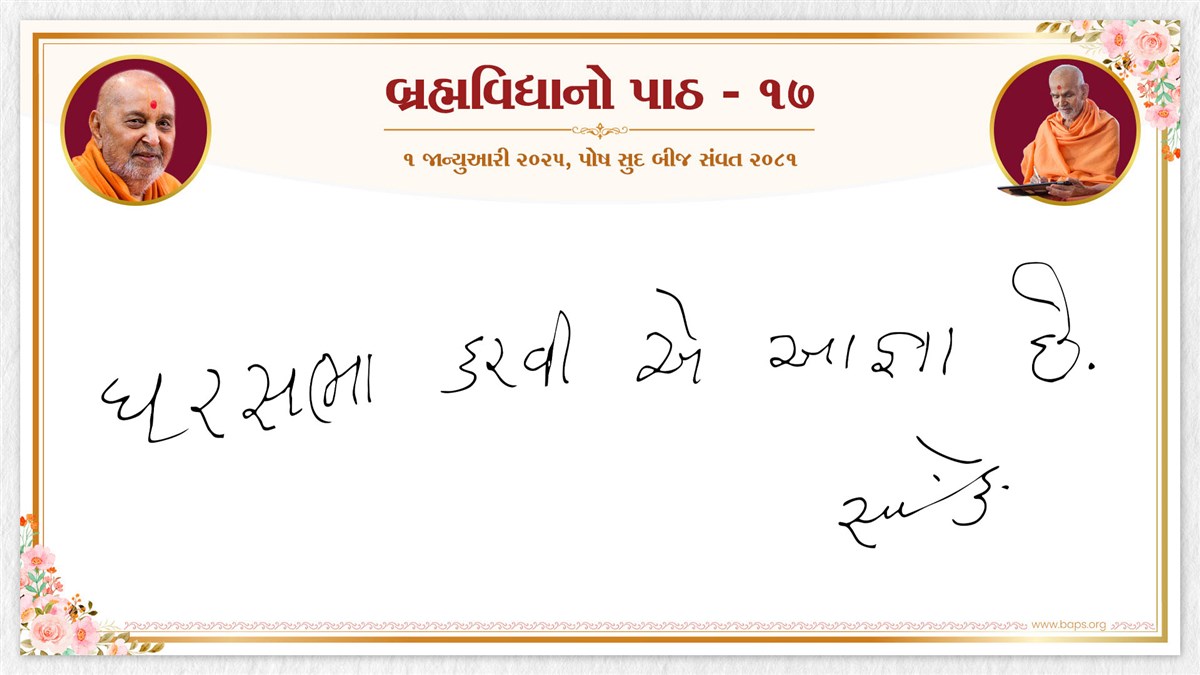 બ્રહ્મવિદ્યાનો પાઠ - ૧૭
૧ જાન્યુઆરી ૨૦૨૫, પોષ સુદ બીજ સંવત ૨૦૮૧
ઘરસભા કરવી એ આજ્ઞા છે.
www.baps.org